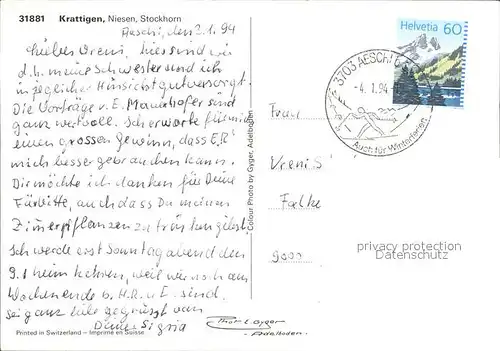 31881 Krattigen, Niesen, Stockhorn
Aeschi, den 2.1.94
Liebes Vreni, hier sind wir
d.h. meine Schwester und ich
in jeglicher Hinsicht gut versorgt.
Die Vorträge v. E. Mauerhofer sind
ganz wertvoll. Ich erwarte für mich
einen grossen Gewinn, dass ER
mich besser gebrauchen kann.
Dir möchte ich danken für Deine
Fürbitte, auch dass Du meinen
Zimmerpflanzen zu trinken gibst.
Ich werde erst Sonntagabend den
9.1 heimkehren, weil wir noch am
Wochenende b. H.R. u E. sind.
Sei ganz liebe gegrüsst von
Deiner Sigria
Printed in Switzerland – Imprimé en Suisse
Colour Photo by Gyger, Adelboden
Phot E. Gyger
Adelboden
Helvetia 60
3703 AESCHI B.
- 4. 1. 94
Auch für Winterferien
Frau
Vreni S
Falke
9000
privacy protection
Datenschutz